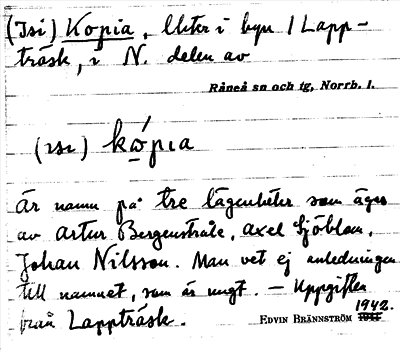 (Isi) Kopia, lhter i byn / Lapp-
träsk, i N. delen av
Råneå sn och tg, Norrb. l.
kópıa
är namn på tre lägenheter som äges
av Artur Bergenstråle, Axel Sjöblom,
Johan Nilsson. Man vet ej anledningen
till namnet, som är ungt. – Uppgiften
från Lappträsk.
EDVIN BRÄNNSTRÖM 1942.